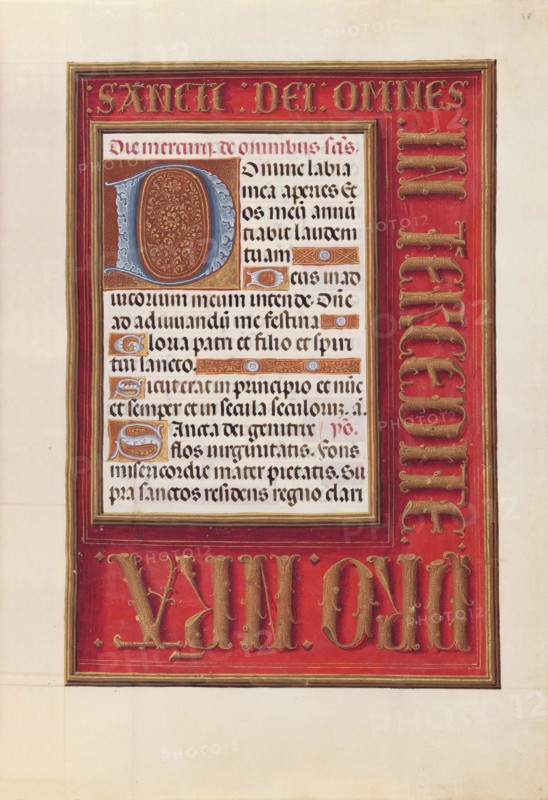 SANCTI · DEI · OMNES
IN TERCEDITE
PRO NRA
Die mercurij. de omnibus scīs.
Domine labia
mea aperies Et
os meū annū
tiabit laudem
tuam
Deus in ad
iutorium meum intende. Dn̄e
ad adiuuandū me festina
Gloria patri et filio et spiri
tui sancto.
Sicut erat in principio et nūc
et semper et in secula seculoruꝫ. a.
Sancta dei genitrix yꝰ.
flos uirginitatis. Fons
misericordie mater pietatis. Su
pra sanctos residens regno clari
PHOTO12